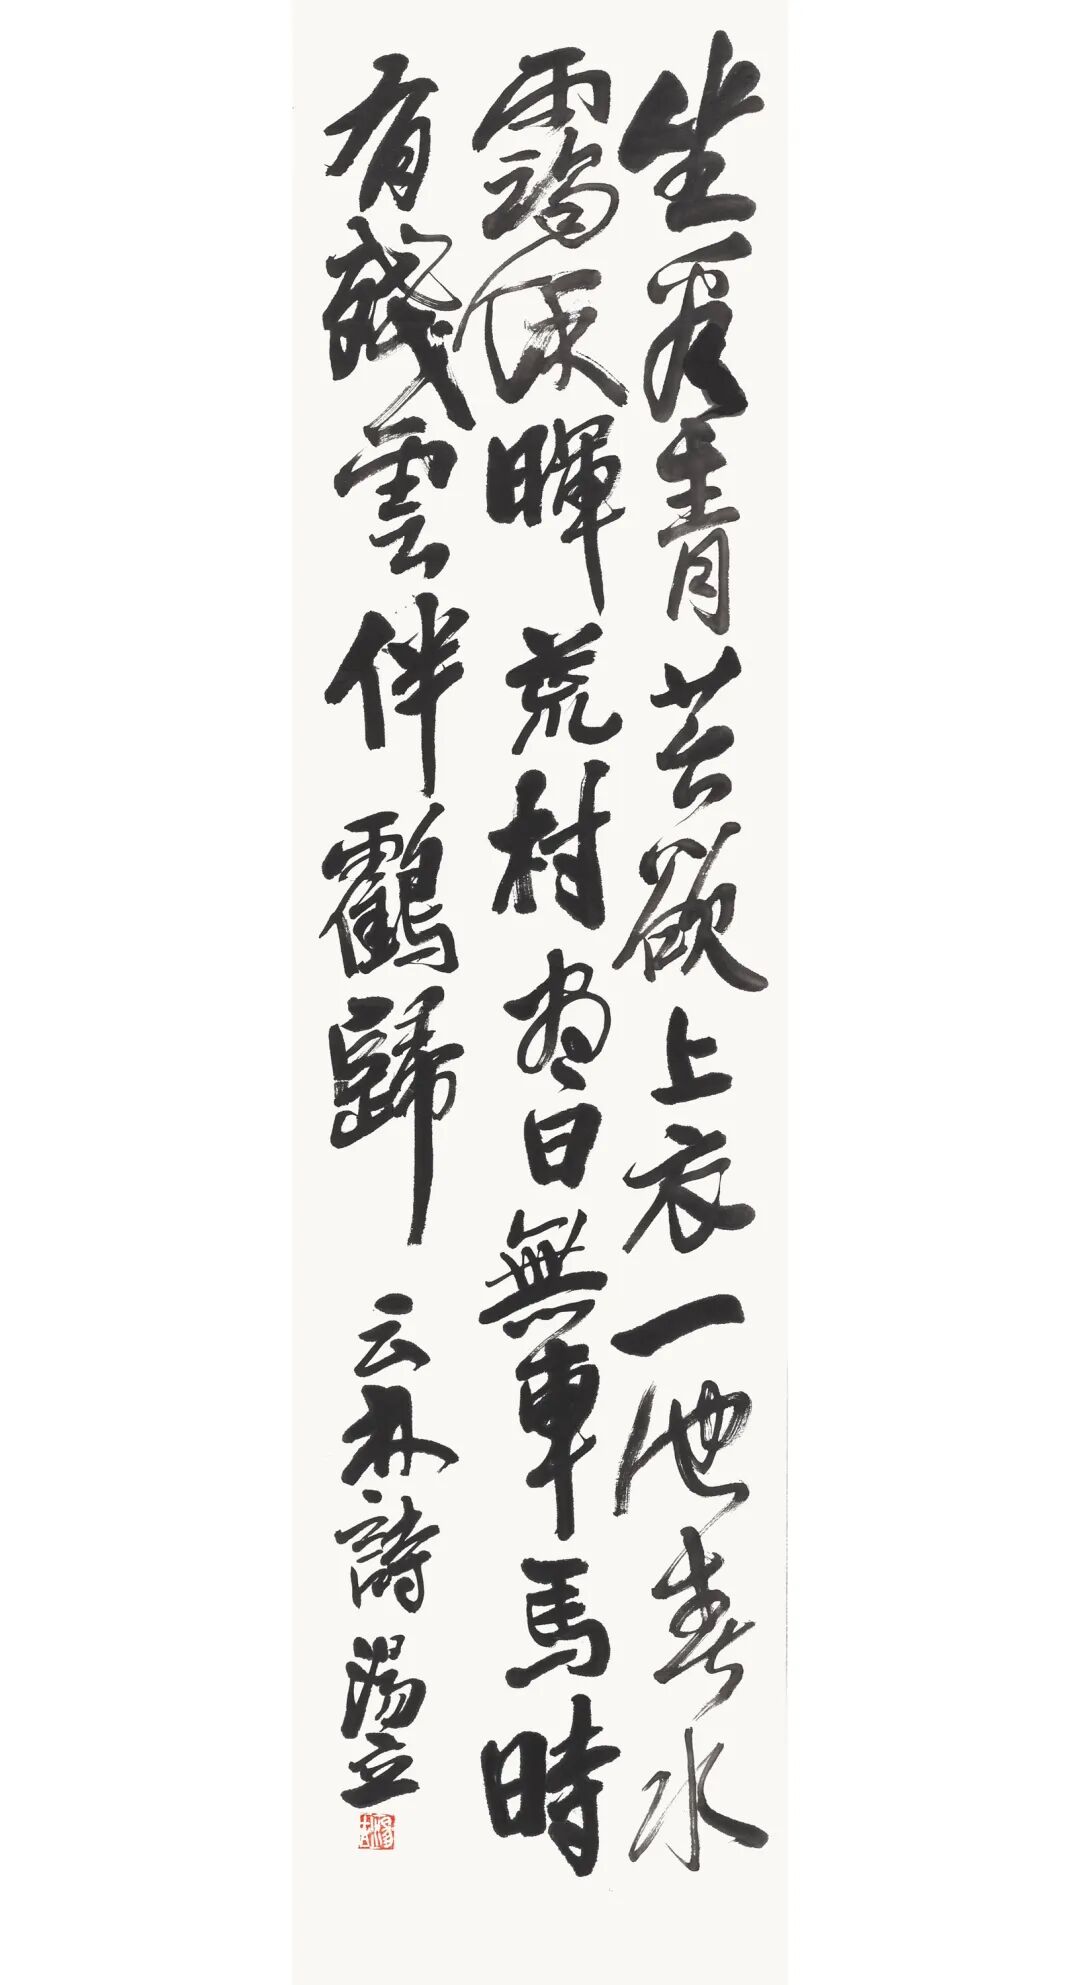 坐看青苔欲上衣一池春水
靄余暉荒村盡日無車馬時
有殘雲伴鸖歸 云林詩 湯立